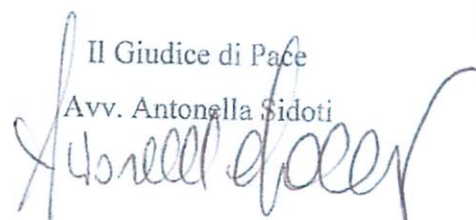 Il Giudice di Pace
Avv. Antonella Sidoti